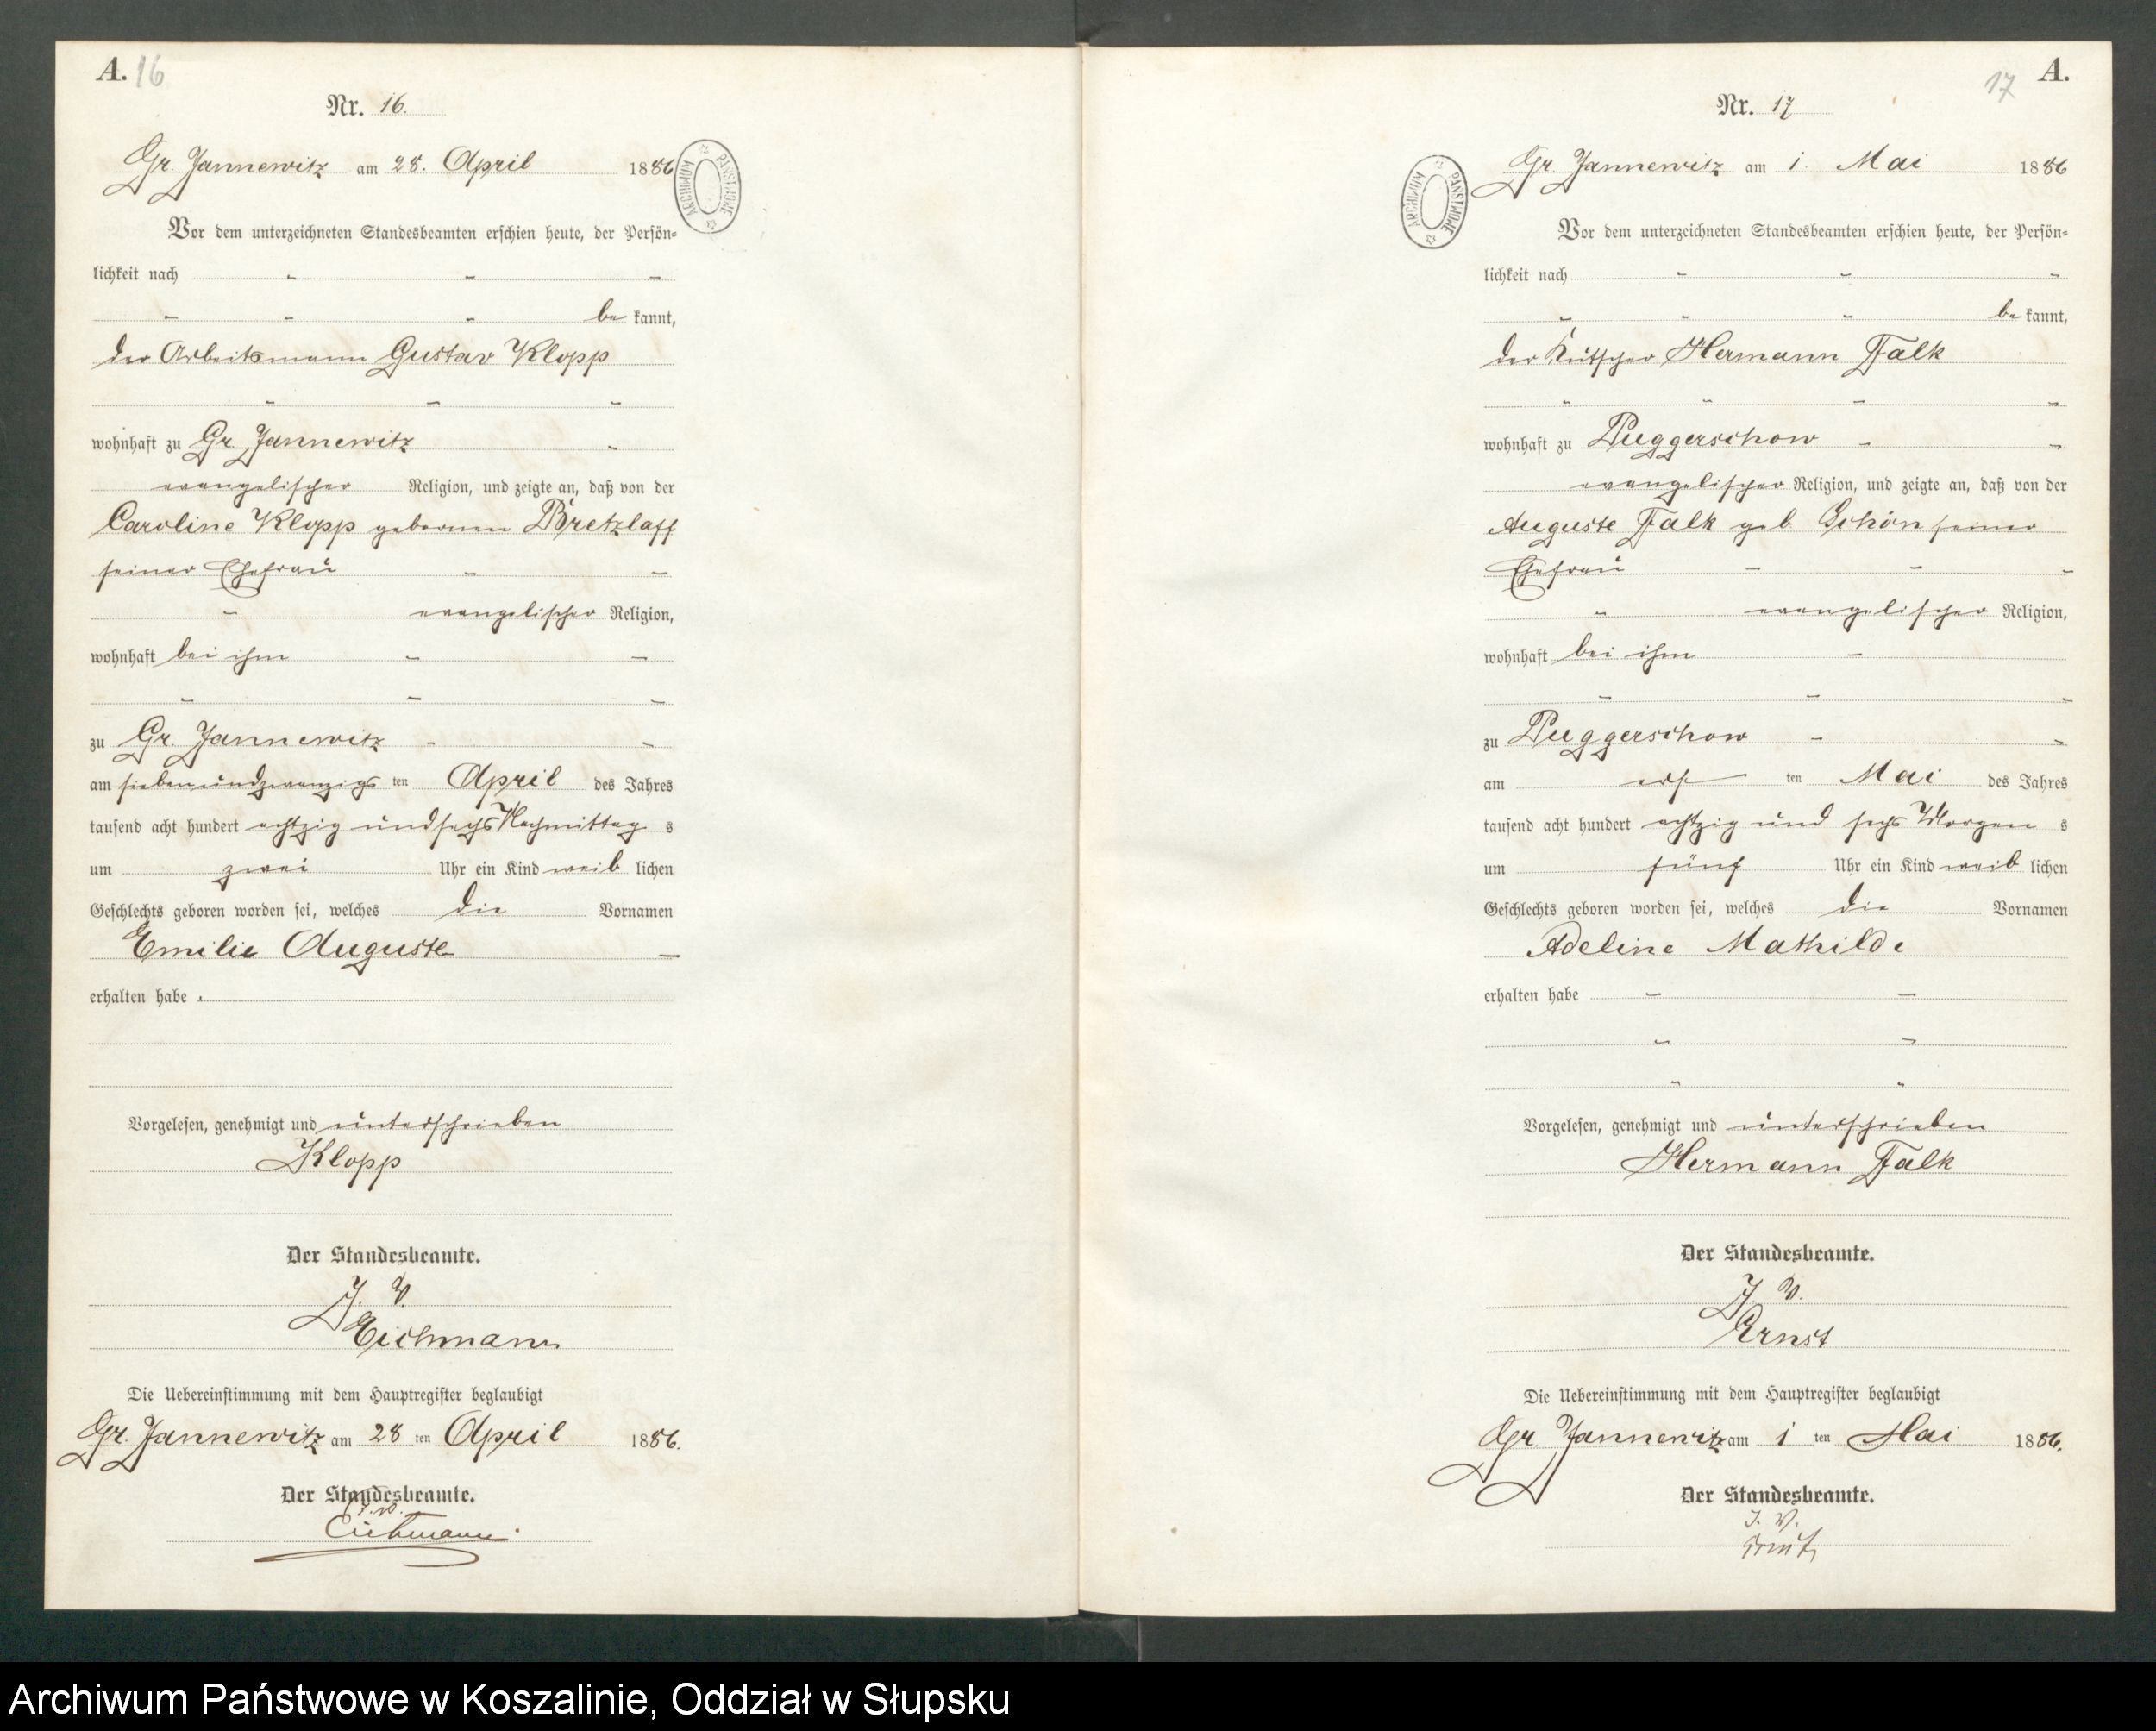 A. 16
Nr. 16.
Gr. Jannewitz am 28. April 1886
Vor dem unterzeichneten Standesbeamten erschien heute, der Persön-
lichkeit nach
be kannt,
der Arbeitsmann Gustav Klopp
wohnhaft zu Gr. Jannewitz
evangelischer Religion, und zeigte an, daß von der
Caroline Klopp gebornen Pretzlaff
seiner Ehefrau
evangelischer Religion,
wohnhaft bei ihm
zu Gr. Jannewitz
am siebenundzwanzigs ten April des Jahres
tausend acht hundert achtzig und sechs Nachmittag s
um zwei Uhr ein Kind weib lichen
Geschlechts geboren worden sei, welches die Vornamen
Emilie Auguste
erhalten habe.
Vorgelesen, genehmigt und unterschrieben
Klopp
Der Standesbeamte.
J. V.
Eichmann
Die Uebereinstimmung mit dem Hauptregister beglaubigt
Gr. Jannewitz am 28 ten April 1886.
Der Standesbeamte.
J. V.
Eichmann.
ARCHIWUM PAŃSTWOWE
17 A.
Nr. 17
Gr. Jannewitz am 1. Mai 1886
Vor dem unterzeichneten Standesbeamten erschien heute, der Persön-
lichkeit nach
be kannt,
der Kutscher Hermann Falk
wohnhaft zu Puggerschow
evangelischer Religion, und zeigte an, daß von der
Auguste Falk geb. Schön seiner
Ehefrau
evangelischer Religion,
wohnhaft bei ihm
zu Puggerschow
am ers ten Mai des Jahres
tausend acht hundert achtzig und sechs Morgen s
um fünf Uhr ein Kind weib lichen
Geschlechts geboren worden sei, welches die Vornamen
Adeline Mathilde
erhalten habe
Vorgelesen, genehmigt und unterschrieben
Hermann Falk
Der Standesbeamte.
J. V.
Ernst
Die Uebereinstimmung mit dem Hauptregister beglaubigt
Gr. Jannewitz am 1 ten Mai 1886.
Der Standesbeamte.
J. V.
Ernst
ARCHIWUM PAŃSTWOWE
Archiwum Państwowe w Koszalinie, Oddział w Słupsku